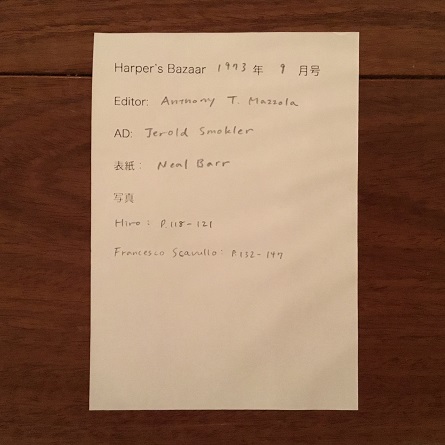 Harper's Bazaar 1973 年 9 月号
Editor: Anthony T. Mazzola
AD: Jerold Smokler
表紙: Neal Barr
写真
Hiro: P.118-121
Francesco Scavullo: P.132-147